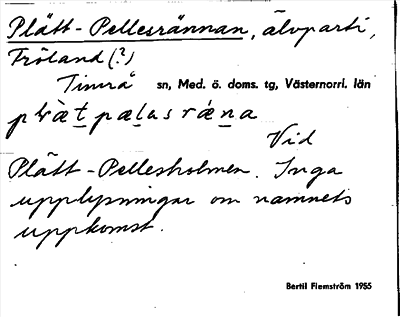 Plätt-Pellesrännan, älvparti,
Fröland (?)
Timrå sn, Med. ö. doms. tg, Västernorrl. län
plæ̀t pæḷas rǽṉa
Vid
Plätt-Pellesholmen. Inga
upplysningar om namnets
uppkomst.
Bertil Flemström 1955